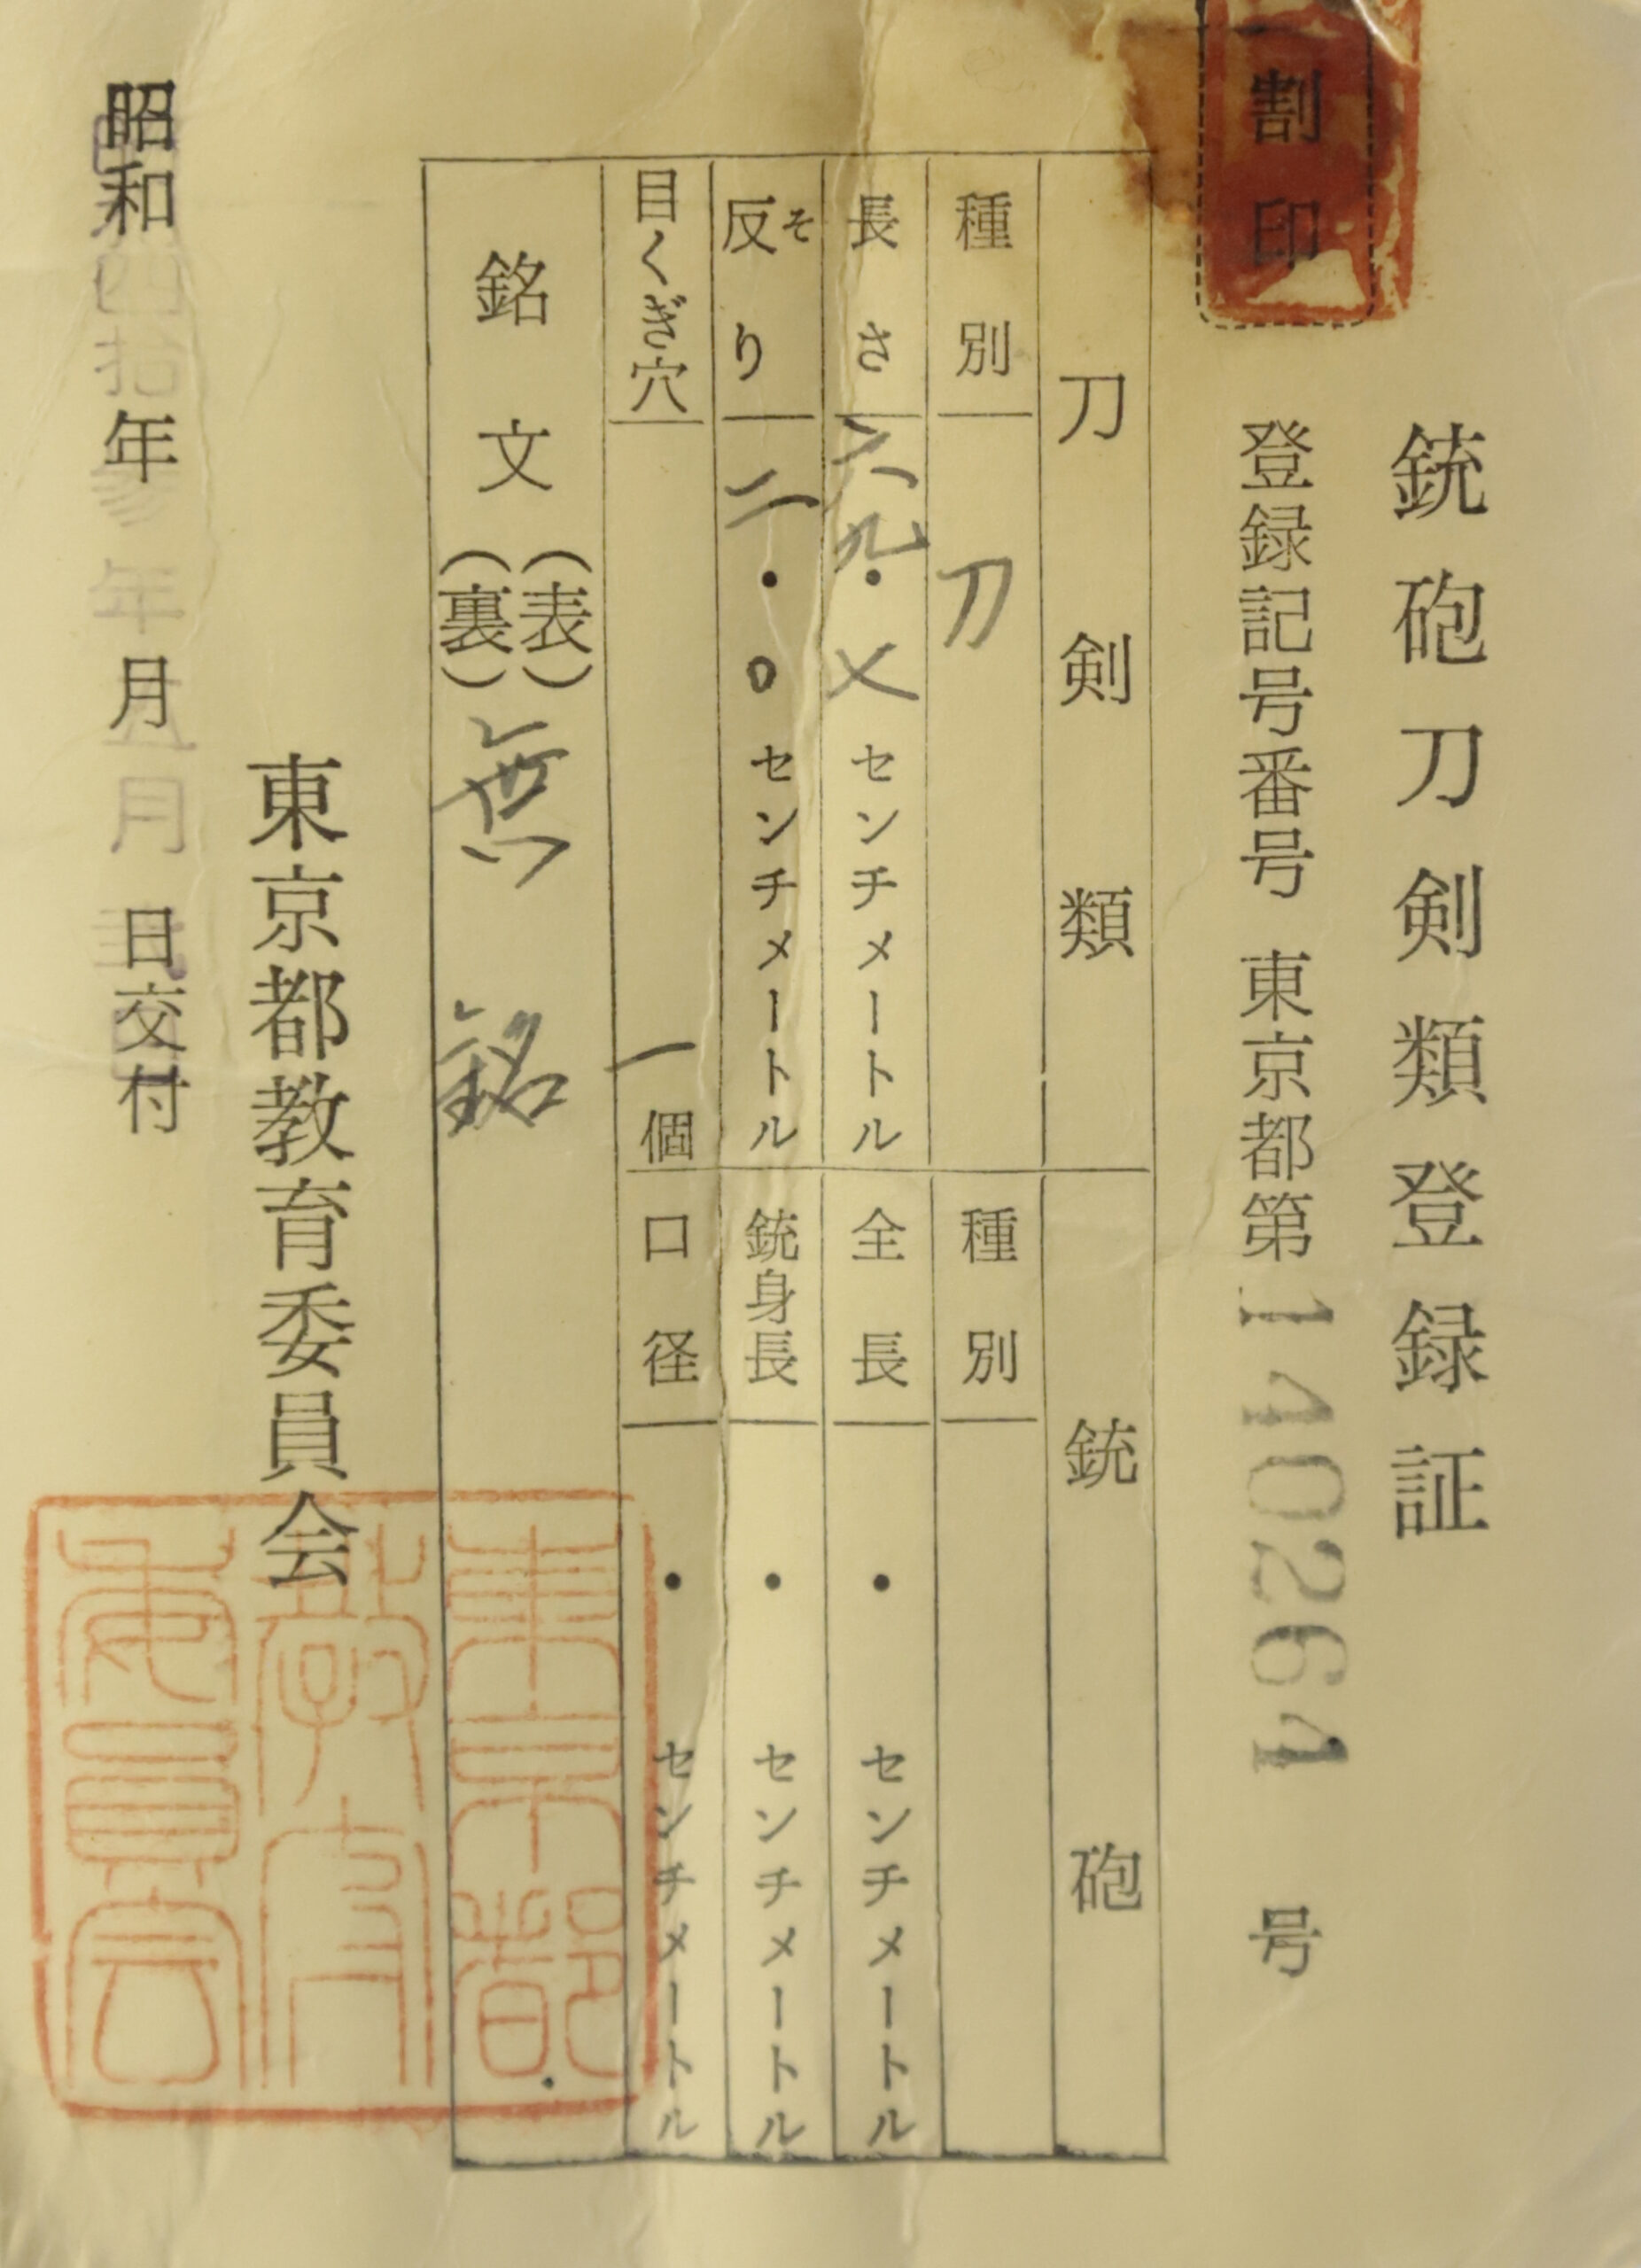 銃砲刀剣類登録証
割印
登録記号番号 東京都第140264号
刀剣類
種別 刀
長さ 六九・七センチメートル
反り そ 二・〇センチメートル
目くぎ穴 一個
銘文(表)(裏) 無銘
銃砲
種別
全長 ・ センチメートル
銃身長 ・ センチメートル
口径 ・ センチメートル
東京都教育委員会
昭和 年 月 日交付
四拾参年 月 日
東京都
教育
委員会